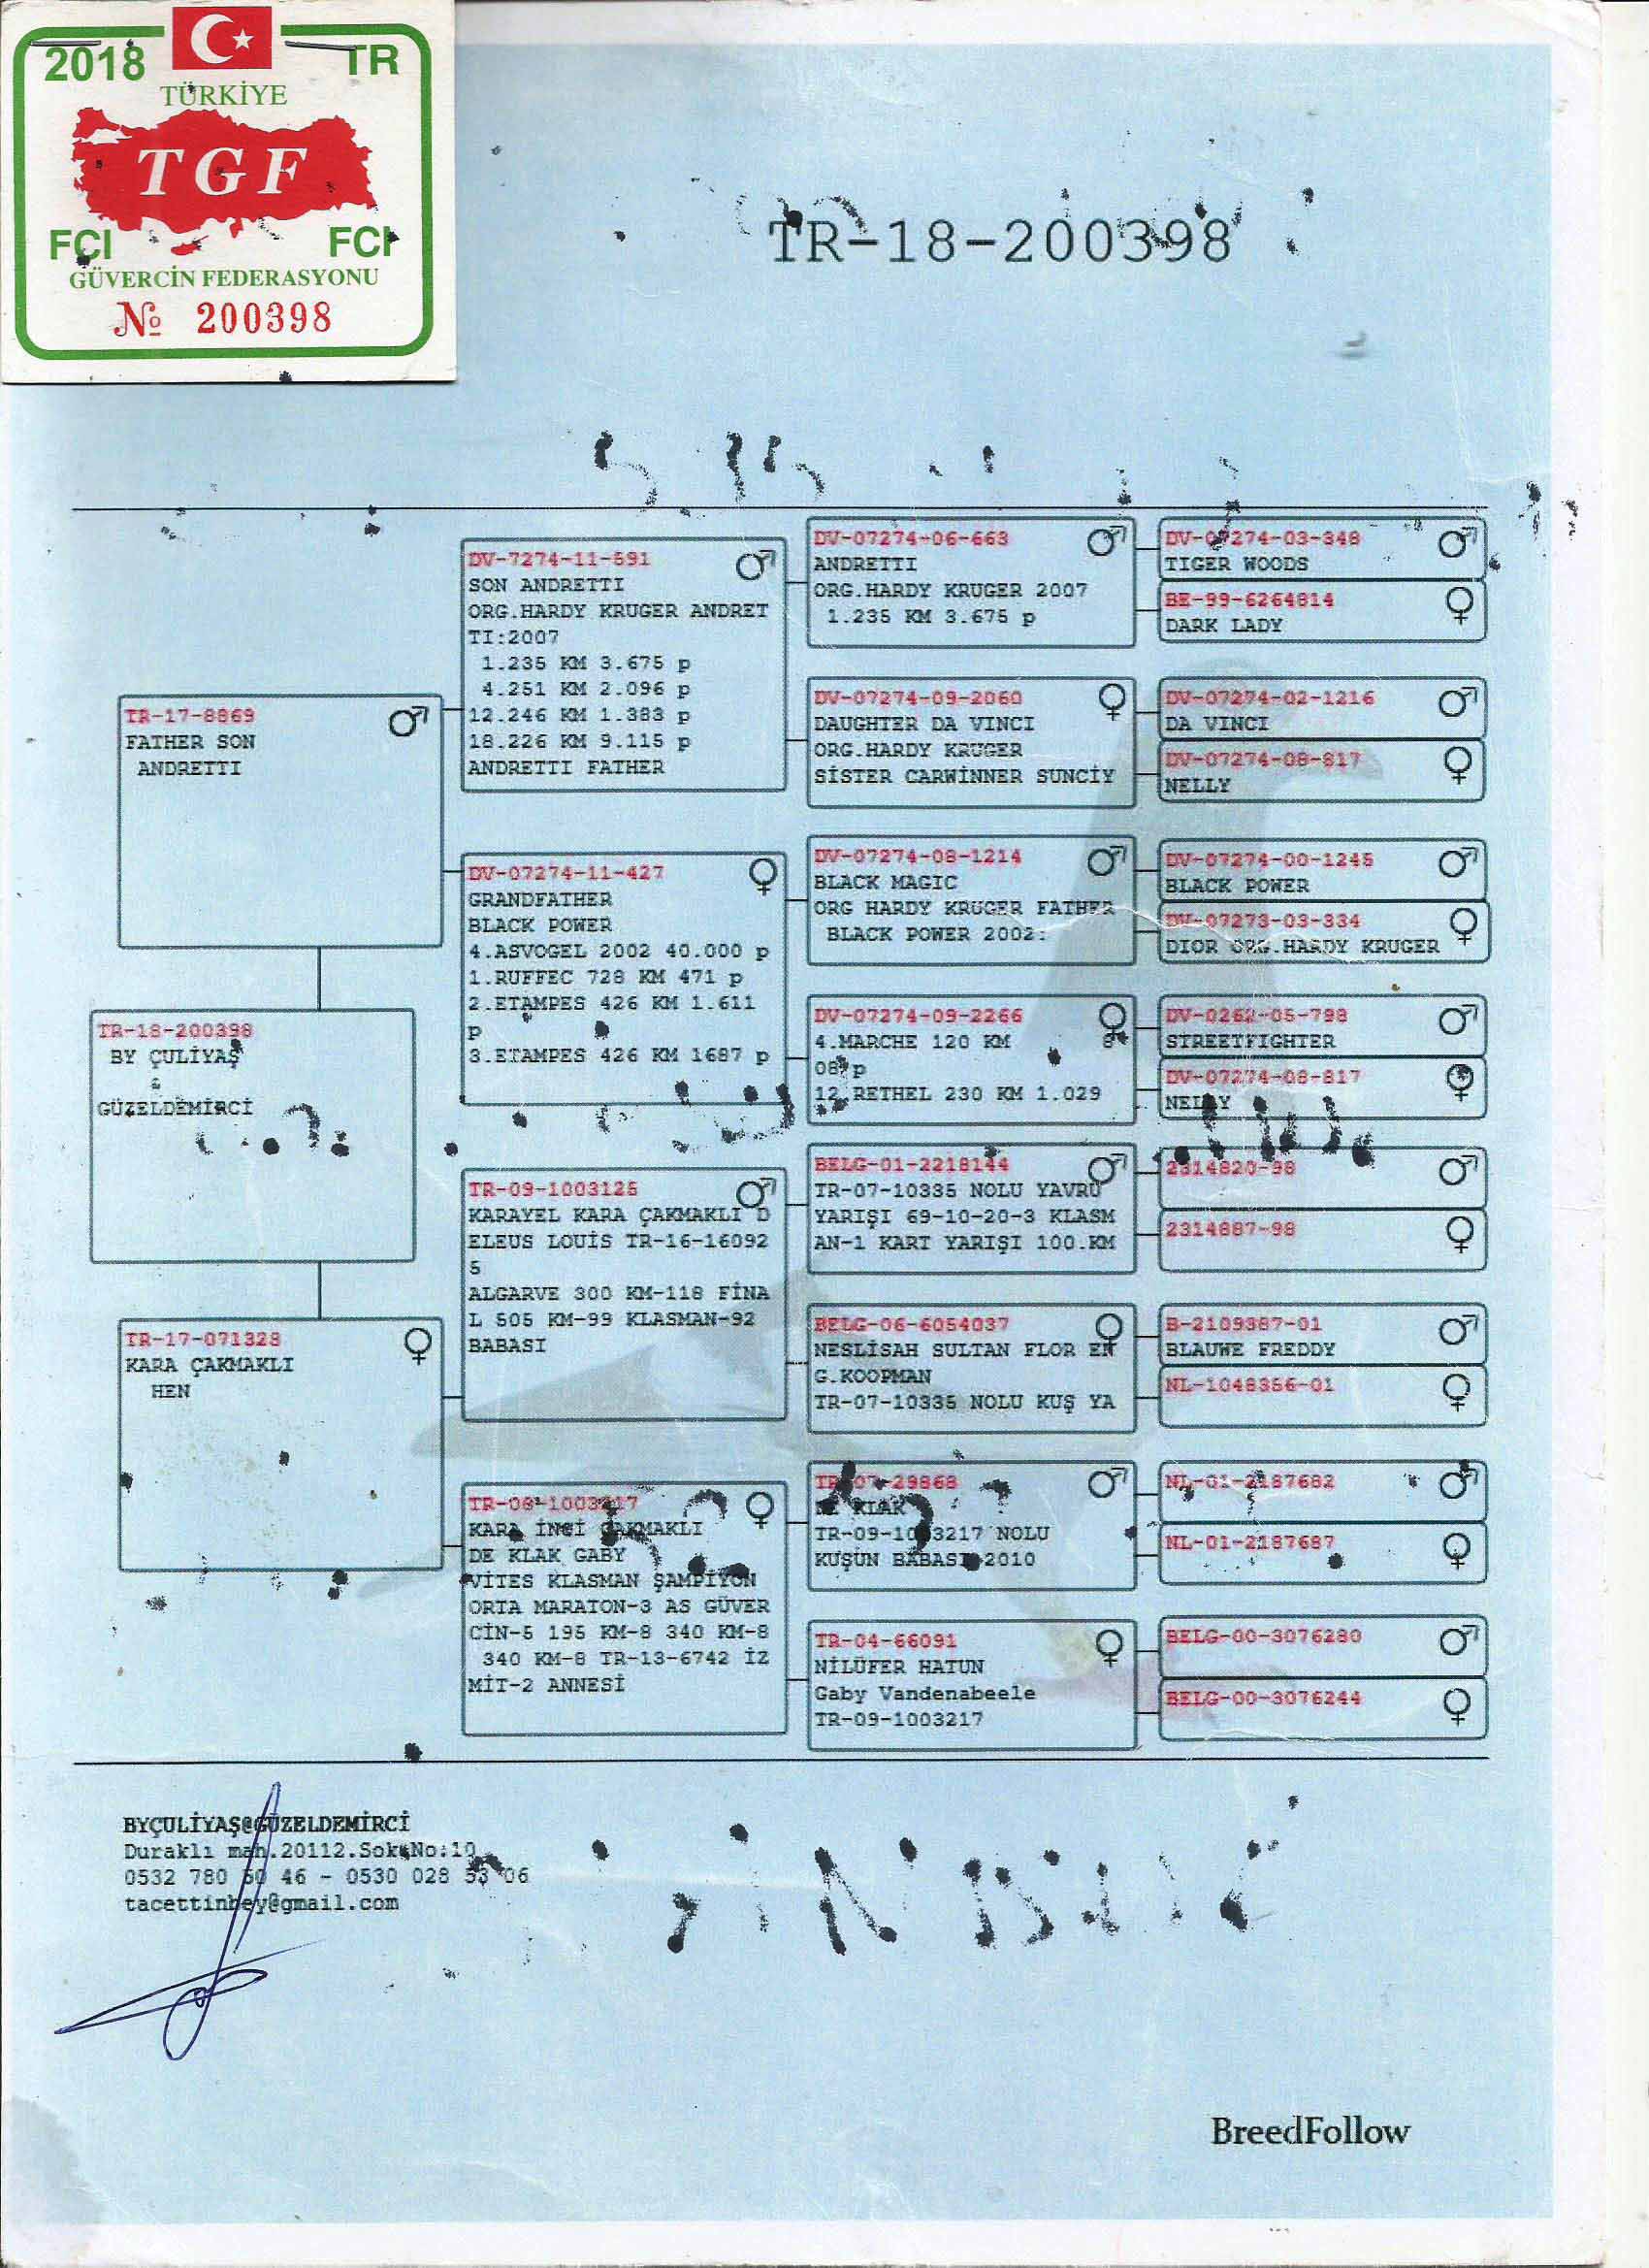 2018 TR
TÜRKİYE
TGF
FCI FCI
GÜVERCİN FEDERASYONU
№ 200398
TR-18-200398
TR-17-8869
FATHER SON
ANDRETTI
TR-18-200398
BY ÇULİYAŞ
&
GÜZELDEMİRCİ
TR-17-071328
KARA ÇAKMAKLI
HEN
DV-7274-11-591
SON ANDRETTI
ORG.HARDY KRUGER ANDRET
TI:2007
1.235 KM 3.675 p
4.251 KM 2.096 p
12.246 KM 1.383 p
18.226 KM 9.115 p
ANDRETTI FATHER
DV-07274-11-427
GRANDFATHER
BLACK POWER
4.ASVOGEL 2002 40.000 p
1.RUFFEC 728 KM 471 p
2.ETAMPES 426 KM 1.611
p
3.ETAMPES 426 KM 1687 p
TR-09-1003125
KARAYEL KARA ÇAKMAKLI D
ELEUS LOUİS TR-16-16092
5
ALGARVE 300 KM-118 FİNA
L 505 KM-99 KLASMAN-92
BABASI
KARA İNCİ ÇAKMAKLI
DE KLAK GABY
VİTES KLASMAN ŞAMPİYON
ORTA MARATON-3 AS GÜVER
CİN-5 195 KM-8 340 KM-8
340 KM-8 TR-13-6742 İZ
MİT-2 ANNESİ
DV-07274-06-663
ANDRETTI
ORG.HARDY KRUGER 2007
1.235 KM 3.675 p
DV-07274-09-2060
DAUGHTER DA VINCI
ORG.HARDY KRUGER
SİSTER CARWİNNER SUNCİY
DV-07274-08-1214
BLACK MAGIC
ORG HARDY KRUGER FATHER
BLACK POWER 2002:
DV-07274-09-2266
4.MARCHE 120 KM
p
12.RETHEL 230 KM 1.029
BELG-01-2218144
TR-07-10335 NOLU YAVRU
YARIŞI 69-10-20-3 KLASM
AN-1 KART YARIŞI 100.KM
BELG-06-6054037
NESLİSAH SULTAN FLOR EN
G.KOOPMAN
TR-07-10335 NOLU KUŞ YA
TR-07-29868
DE KLAK
TR-09-1003217 NOLU
KUŞUN BABASI 2010
TR-04-66091
NİLÜFER HATUN
Gaby Vandenabeele
TR-09-1003217
DV-07274-03-348
TIGER WOODS
BE-99-6264814
DARK LADY
DV-07274-02-1216
DA VINCI
DV-07274-08-817
NELLY
DV-07274-00-1245
BLACK POWER
DV-07273-03-334
DIOR ORG.HARDY KRUGER
DV-0262-05-798
STREETFIGHTER
DV-07274-08-817
NELLY
2314820-98
2314887-98
B-2109387-01
BLAUWE FREDDY
NL-1048356-01
NL-01-2187682
NL-01-2187687
BELG-00-3076280
BELG-00-3076244
BYÇULİYAŞ@GÜZELDEMİRCİ
Duraklı mah.20112.Sok No:10
0532 780 50 46 - 0530 028 53 06
tacettinbey@gmail.com
BreedFollow